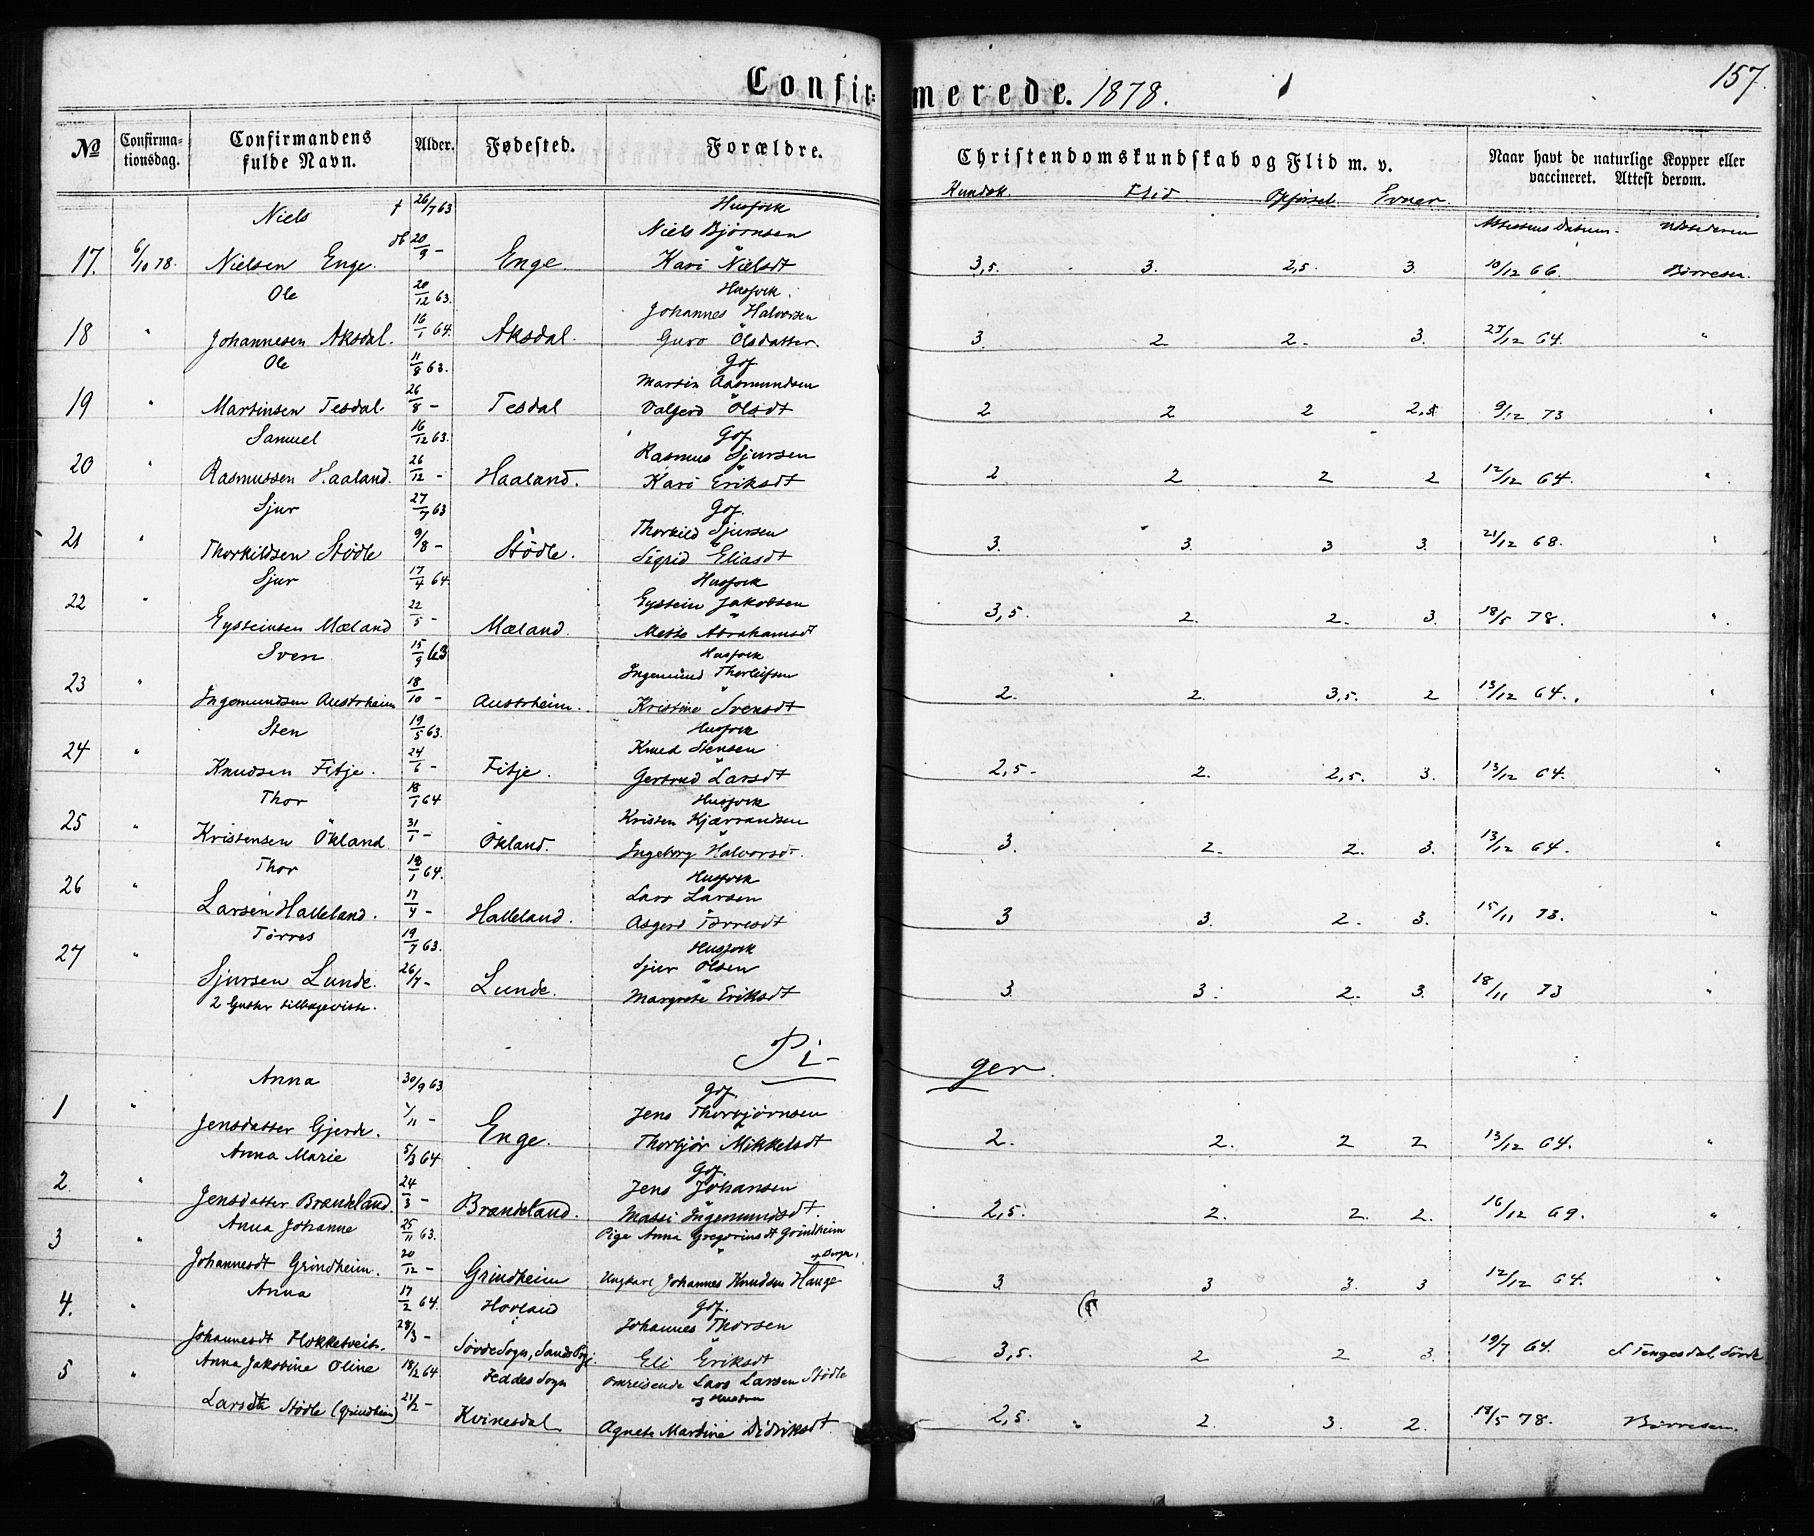 157.
Confir= merede. 1878.
№ Confirma-tionsdag. Confirmandens fulde Navn. Alder. Fødested. Forældre. Christendomskundskab og Flid m. v. Naar havt de naturlige Kopper eller vaccineret. Attest derom.
Kundsk. Flid Opførsel Evner
Attestens Datum. Udstederen
Niels f 26/7 63 Husfolk
Niels Bjørnsen
17. 6/10 78. Nielsen Enge. db 20/9 - Enge. Kari Nielsdt 3,5. 3. 2,5. 3. 10/12 66. Børresen
Ole 20/12 63. Husfolk.
Johannes Halvorsen
18 " Johannesen Aksdal. 16/1 64. Aksdal. Guro Olsdatter. 3. 2 2. 3. 27/12 64. "
Ole 11/8 63. Gof
Martin Aasmundsen
19 " Martinsen Tesdal. 26/8 - Tesdal Valgerd Olsdt 2 2 2 2,5 9/12 73 "
Samuel 16/12 63. Gof
Rasmus Sjursen
20 " Rasmussen Haaland. 26/12 - Haaland. Kari Eriksdt 2 2 2 2 12/12 64. "
Sjur 27/7 63 Gof.
Thorkild Sjursen
21 " Thorkildsen Stødle 9/8 - Stødle. Sigrid Eliasdt 3. 3. 3 3. 21/12 68. "
Sjur 17/4 64. Husfolk
Eystein Jakobsen
22 " Eysteinsen Mæland 22/5 - Mæland. Mette Abrahamsdt 3,5. 2. 2. 3. 18/5 78. "
Sven 15/9 63 Husfolk
Ingemund Thorleifsen
23 " Ingemundsen Austrheim 18/10 - Austrheim. Kristine Svensdt 2. 2. 3,5. 2 13/12 64. "
Sten 19/5 63. Husfolk
Knud Stensen
24 " Knudsen Fitje. 24/6 - Fitje. Gertrud Larsdt 2,5. 2. 2,5. 3. 13/12 64. "
Thor 18/1 64 Husfolk
Kristen Kjærrandsen
25 " Kristensen Økland 31/1 - Økland. Ingeborg Halvorsdt. 3. 2. 2. 3. 13/12 64. "
Thor 18/1 64. Husfolk
Lars Larsen
26 " Larsen Halleland. 17/4 - Halleland. Asgerd Tørresdt 3 3. 2. 3. 15/11 73. "
Tørres 19/7 63. Husfolk
Sjur Olsen
27 " Sjursen Lunde. 26/7 - Lunde. Margrete Eriksdt 3. 3. 2. 3. 18/11 73 "
2 Gutter tilbageviste.
Pi- ger.
Anna 30/9 63 Gof.
Jens Thorbjørnsen
1 " Jensdatter Gjerde. 1/11 - Enge. Thorbjør Mikkelsdt 2. 2. 2 2 13/12 64. "
Anna Marie 5/3 64 Gof.
Jens Johansen
2 " Jensdatter Brændeland. 24/3 - Brændeland. Massi Ingemundsdt. 2,5. 2. 2. 2. 16/12 69. "
Anna Johanne 25/11 63. Pige Anna Gregoriusdt Grindheim
3 " Johannesdt Grindheim. 20/12 - Grindheim Ungkarl Johannes Knudsen Hauge 3. 3 3. 3 12/12 64. "
Anna 17/2 64. Hovland Gof.
4. " Johannes Thorsen
Johannesdt Hokketveit. 28/3 - Søvde Sogn, Sands Pgj. Eli Eriksdt 3,5. 2 2 3. 19/7 64. S Tengesdal, Søvde
Anna Jakobine Oline 18/2 64 Feddes Sogn omreisende Lars Larsen Stødle
5 " og Hustru
Larsdt Stødle (Grindheim) 21/2 - Kvinesdal Agnete Martine Didriksdt. 2,5. " 2. 3. 2. 18/5 78. Børresen.